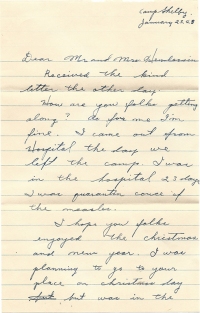 Camp Shelby,
January 22, 
Dear Mr and Mrs 
Received the kind
letter the other day.
How are you folks getting
along? As for me I'm
fine. I came out from
Hospital the day we
left the camp. I was
in the hospital 23 days
I was quarantin 
the measles.
I hope you folks
enjoyed the christmas
and new year. I was
planning to go to your
place on christmas day
but was in the